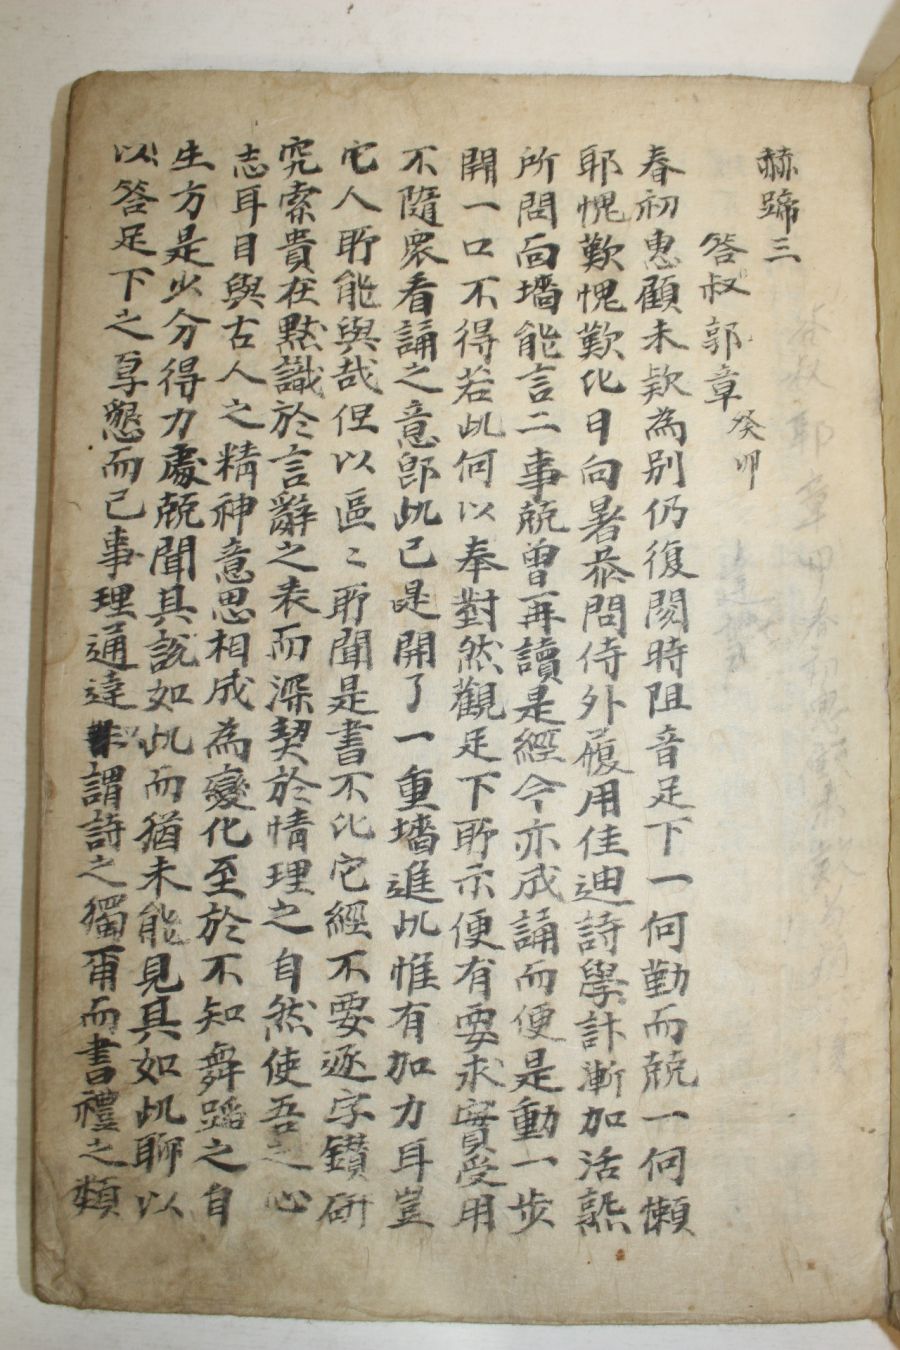 赫蹄三
答叔郭章 癸卯
春初惠顧未款為別仍復閱時阻音足下一何勤而兢一何懶
耶愧歎愧歎化日向暑恭問侍外履用佳迪詩學計漸加活熟
所問向墻能言二事兢曾再讀是經今亦成誦而便是動一步
開一口不得若此何以奉對然觀足下所示便有要求實受用
不隨衆看誦之意卽此已是開了一重墻進此惟有加力耳豈
它人所能與哉但以區〻所聞是書不比它經不要逐字鑽研
究索貴在默識於言辭之表而深契於情理之自然使吾之心
志耳目與古人之精神意思相成為變化至於不知舞蹈之自
生方是少分得力處兢聞其說如此而猶未能見其如此聊以
以答足下之厚懇而已事理通達謂詩之獨爾而書禮之類